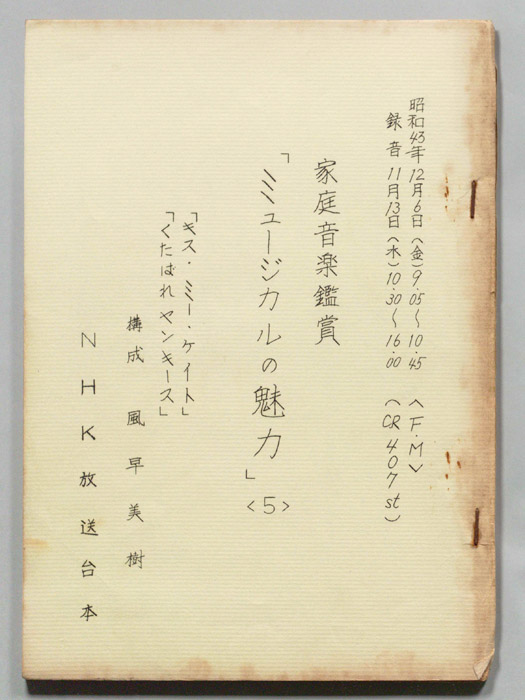 昭和43年12月6日(金)9.05〜10.45 〈F.M〉
録音 11月13日(木)10.30〜16.00 (CR407st)
家庭音楽鑑賞
「ミュージカルの魅力」〈5〉
「キス・ミー・ケイト」
「くたばれヤンキース」
構成 風早美樹
NHK放送台本